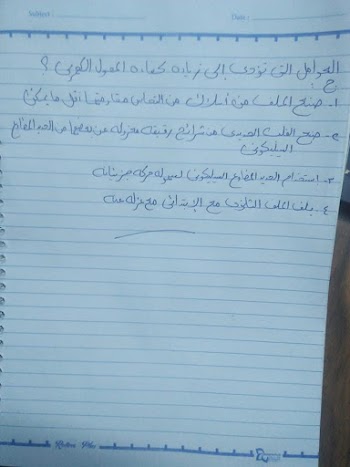 Subject :
Date :
العوامل التى تؤدى إلى زيادة كفاءة المحول الكهربى ؟
ج
١- صنع الملف من أسلاك من النحاس مقاومتها أقل ما يمكن
٢- صنع القلب الحديدى من شرائح رقيقة معزولة عن بعضها من الحديد المطاوع
السيليكونى
٣- استخدام الحديد المطاوع السيليكونى لسهولة حركة جزيئاته
٤- يلف الملف الثانوى مع الإبتدائى مع عزله عنه